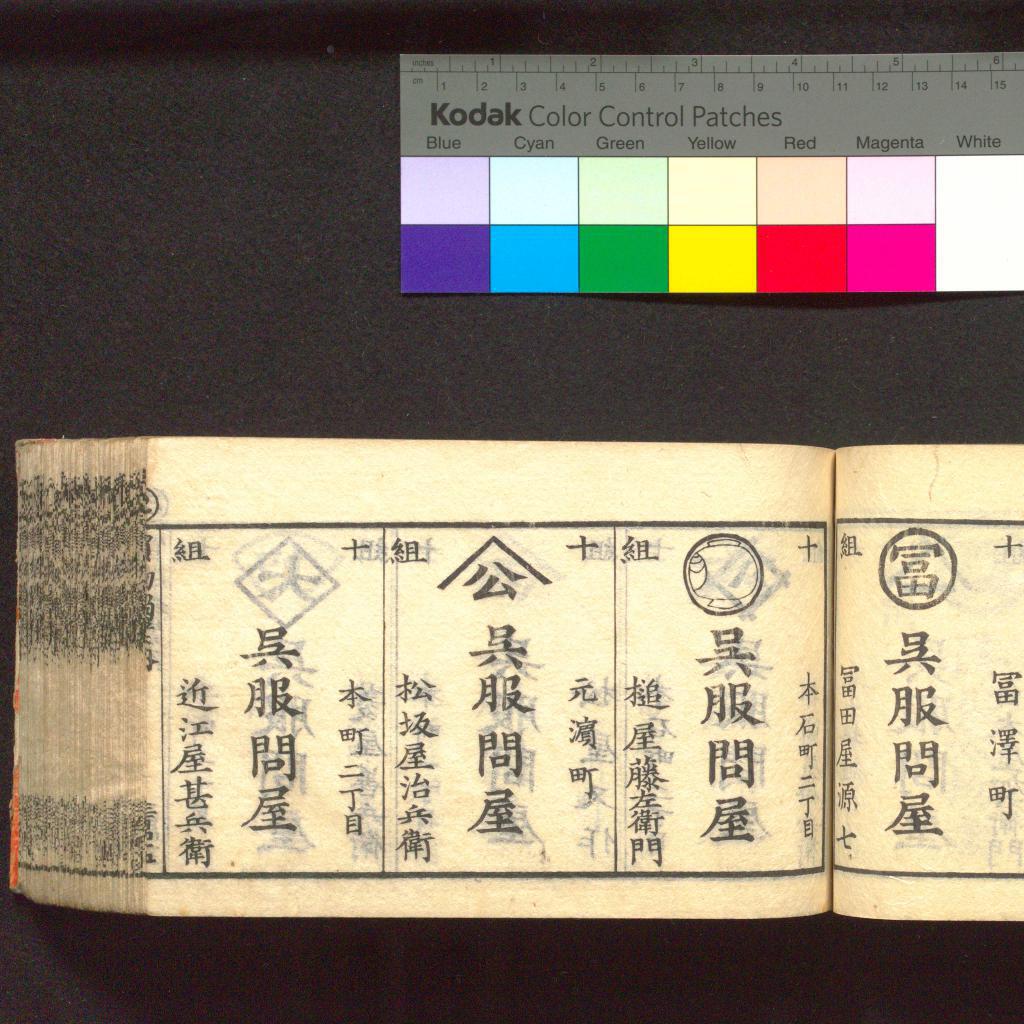 inches 1 2 3 4 5 6
cm 1 2 3 4 5 6 7 8 9 10 11 12 13 14 15
Kodak Color Control Patches
Blue Cyan Green Yellow Red Magenta White
十
組
冨
冨澤町
呉服問屋
冨田屋源七
十
組
本石町二丁目
呉服問屋
槌屋藤左衛門
十
組
公
元濵町
呉服問屋
松坂屋治兵衛
十
組
本町二丁目
呉服問屋
近江屋甚兵衛